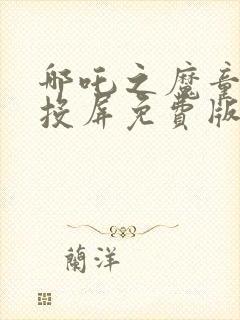 哪吒之魔童
投屏免費版
蘭洋